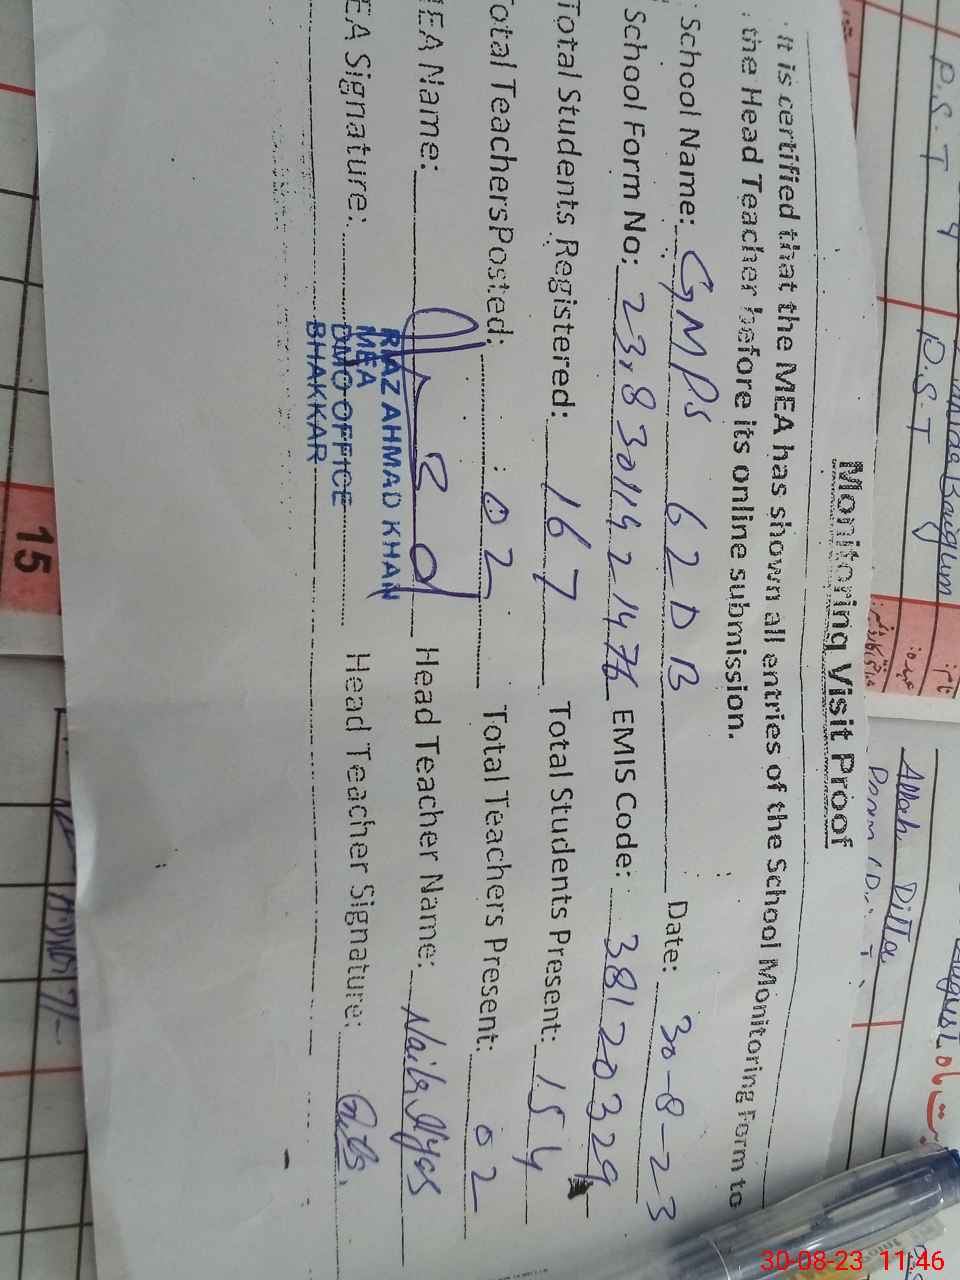 Monitoring Visit Proof
It is certified that the MEA has shown all entries of the School Monitoring Form to
the Head Teacher before its online submission.
School Name: GMPS 62 DB Date: 30-8-23
School Form No: EMIS Code: 38120329
Total Students Registered: 167 Total Students Present: 154
Total Teachers Posted: 02 Total Teachers Present: 02
MEA Name: Head Teacher Name: Naila Ilyas
EA Signature: Head Teacher Signature:
RIAZ AHMAD KHAN
MEA
DMO OFFICE
BHAKKAR
P.S.T
P.S.T
Baigum
Allah Ditta
August
15
30-08-23 11:46